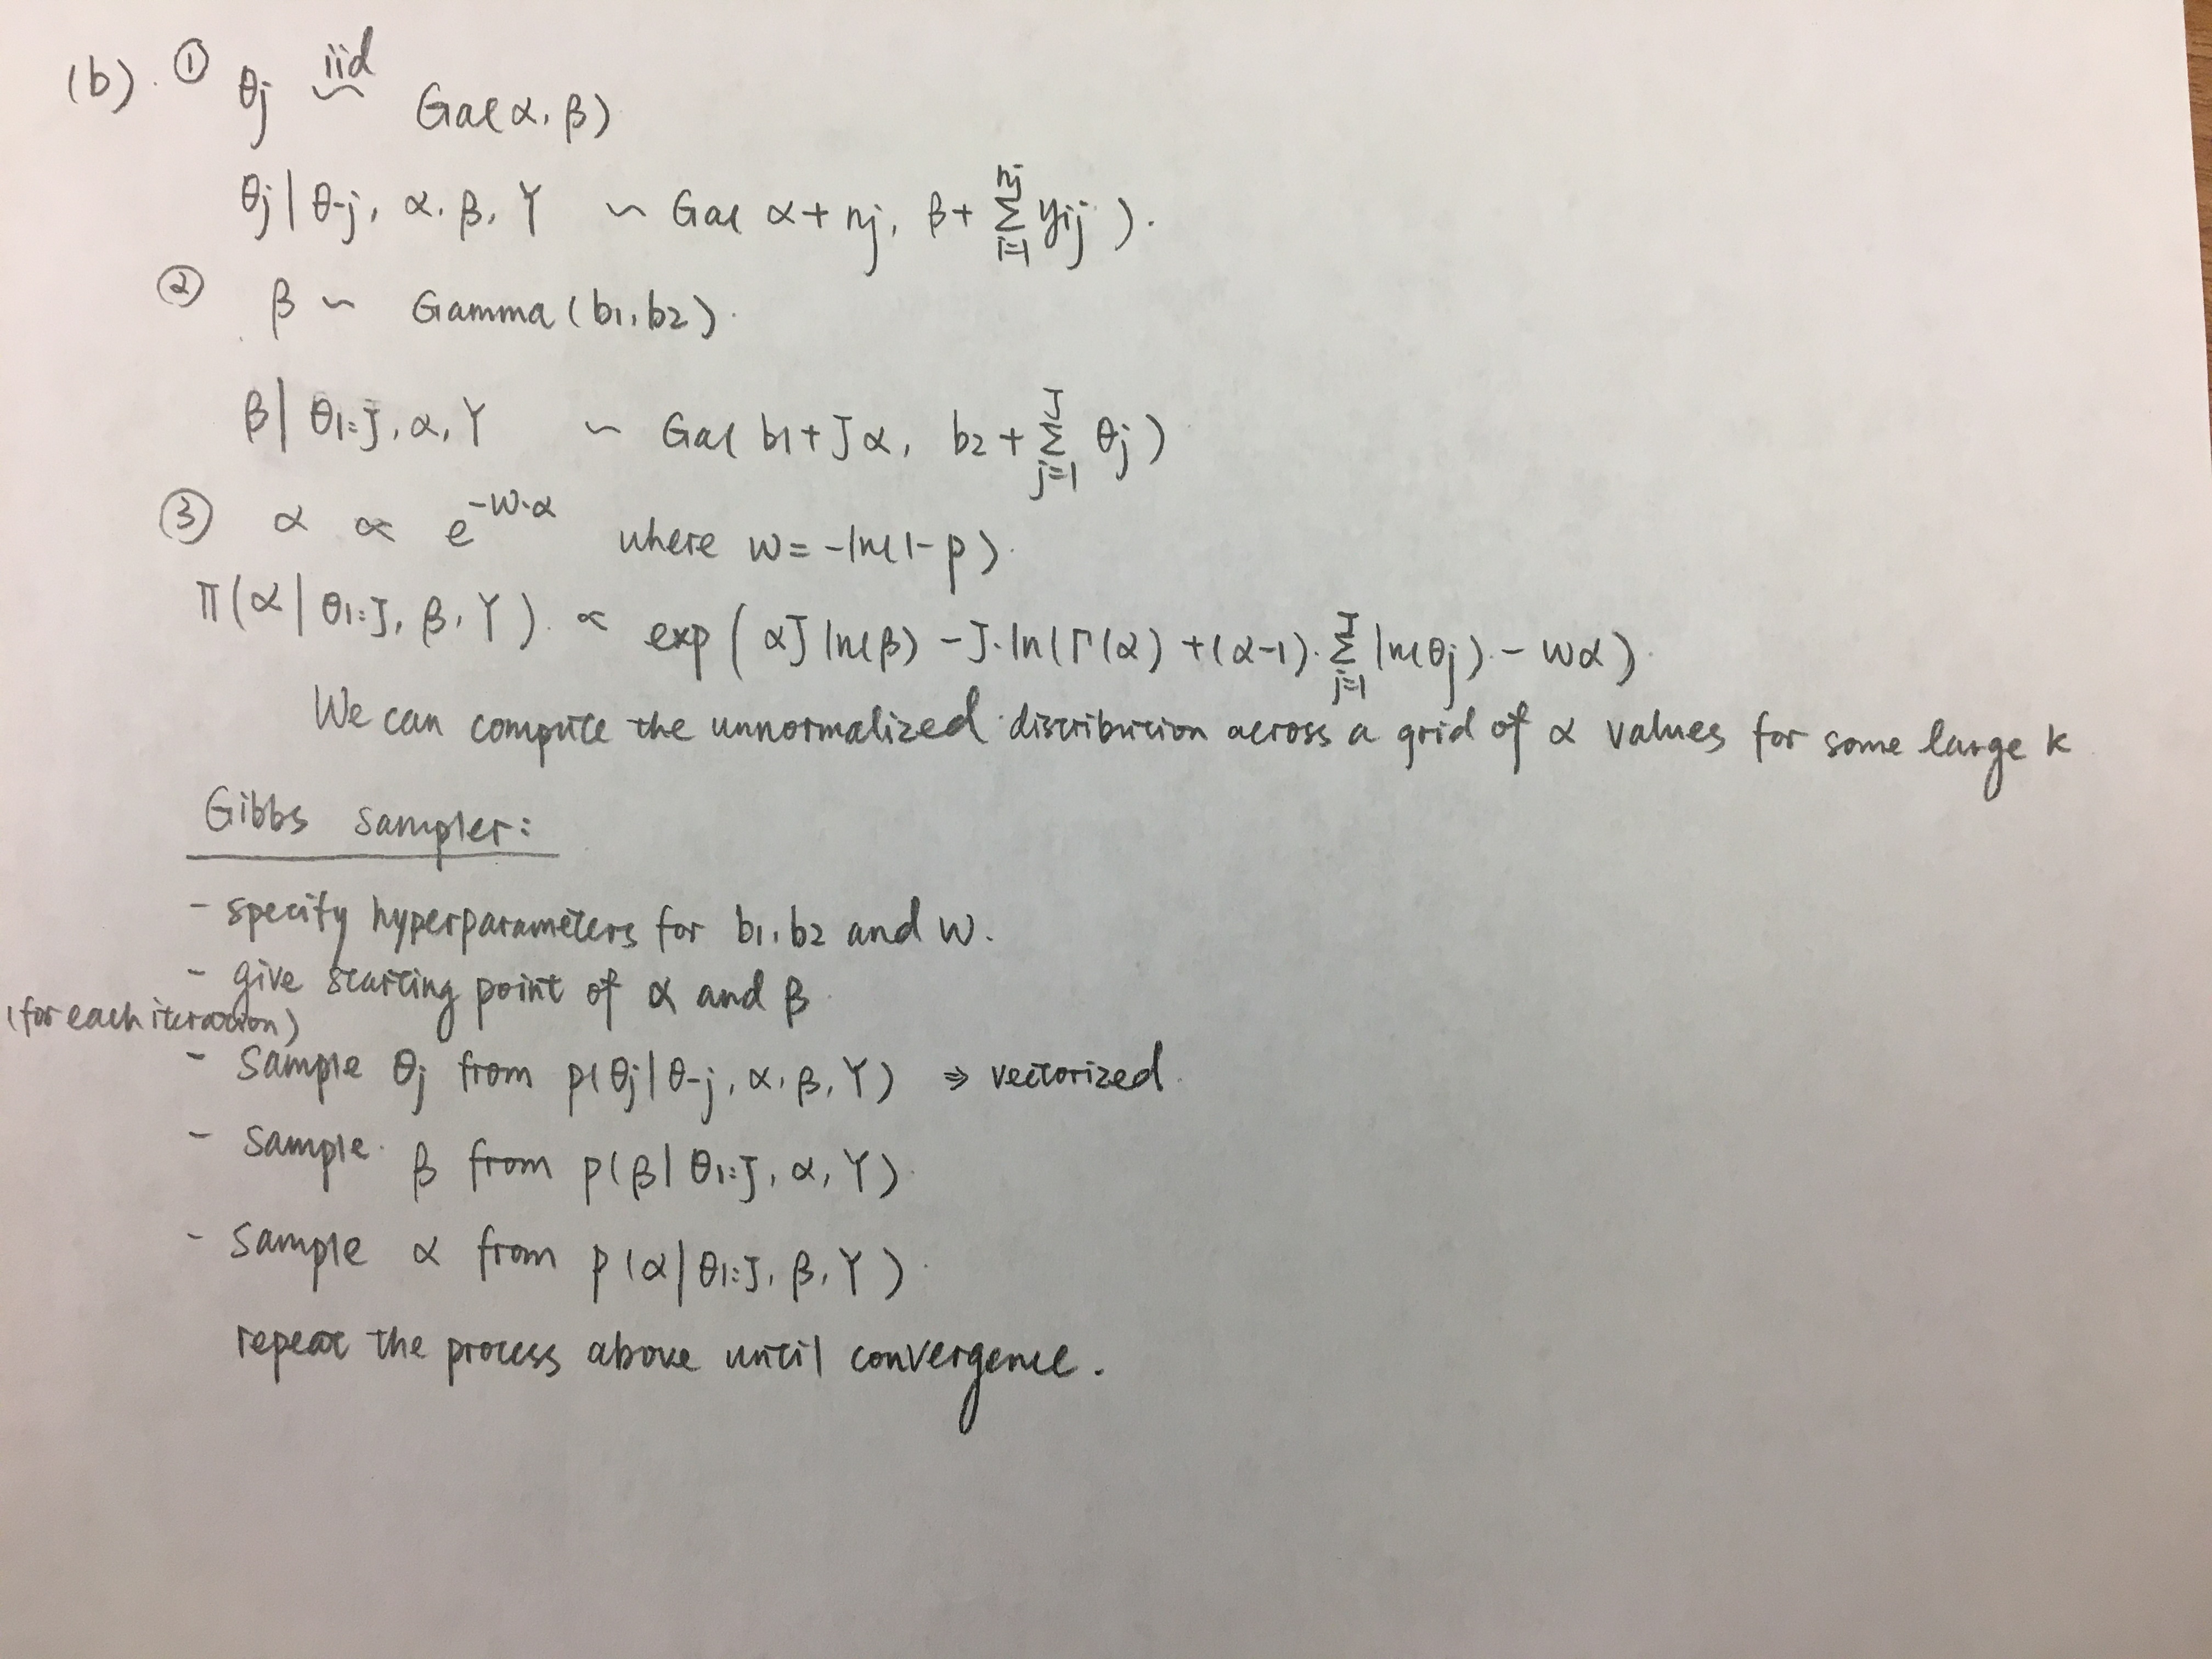 (b). ① θj iid~ Ga(α, β)
θj | θ-j, α, β, Y ~ Ga( α + nj, β + Σ_{i=1}^{nj} yij ).
② β ~ Gamma (b1, b2).
β | θ1:J, α, Y ~ Ga( b1 + Jα, b2 + Σ_{j=1}^{J} θj )
③ α ∝ e^{-w·α} where w = -ln(1-p).
π(α | θ1:J, β, Y) ∝ exp( αJ ln(β) - J·ln(Γ(α) + (α-1)·Σ_{j=1}^{J} ln(θj) - wα).
We can compute the unnormalized distribution across a grid of α values for some large k
Gibbs sampler:
- specify hyperparameters for b1, b2 and w.
- give starting point of α and β
(for each iteration)
- Sample θj from p(θj | θ-j, α, β, Y) ⇒ vectorized.
- Sample β from p(β | θ1:J, α, Y).
- Sample α from p(α | θ1:J, β, Y).
repeat the process above until convergence.